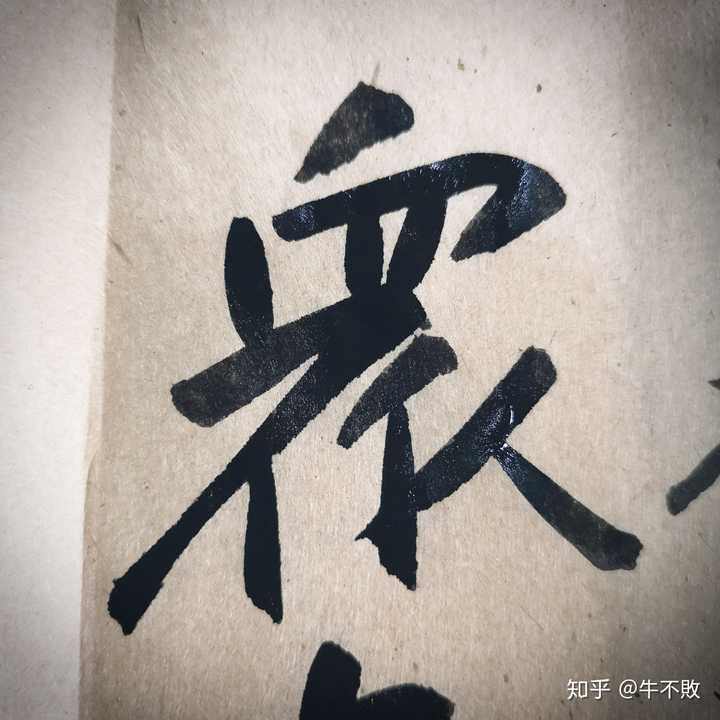 眾
知乎 @牛不敗